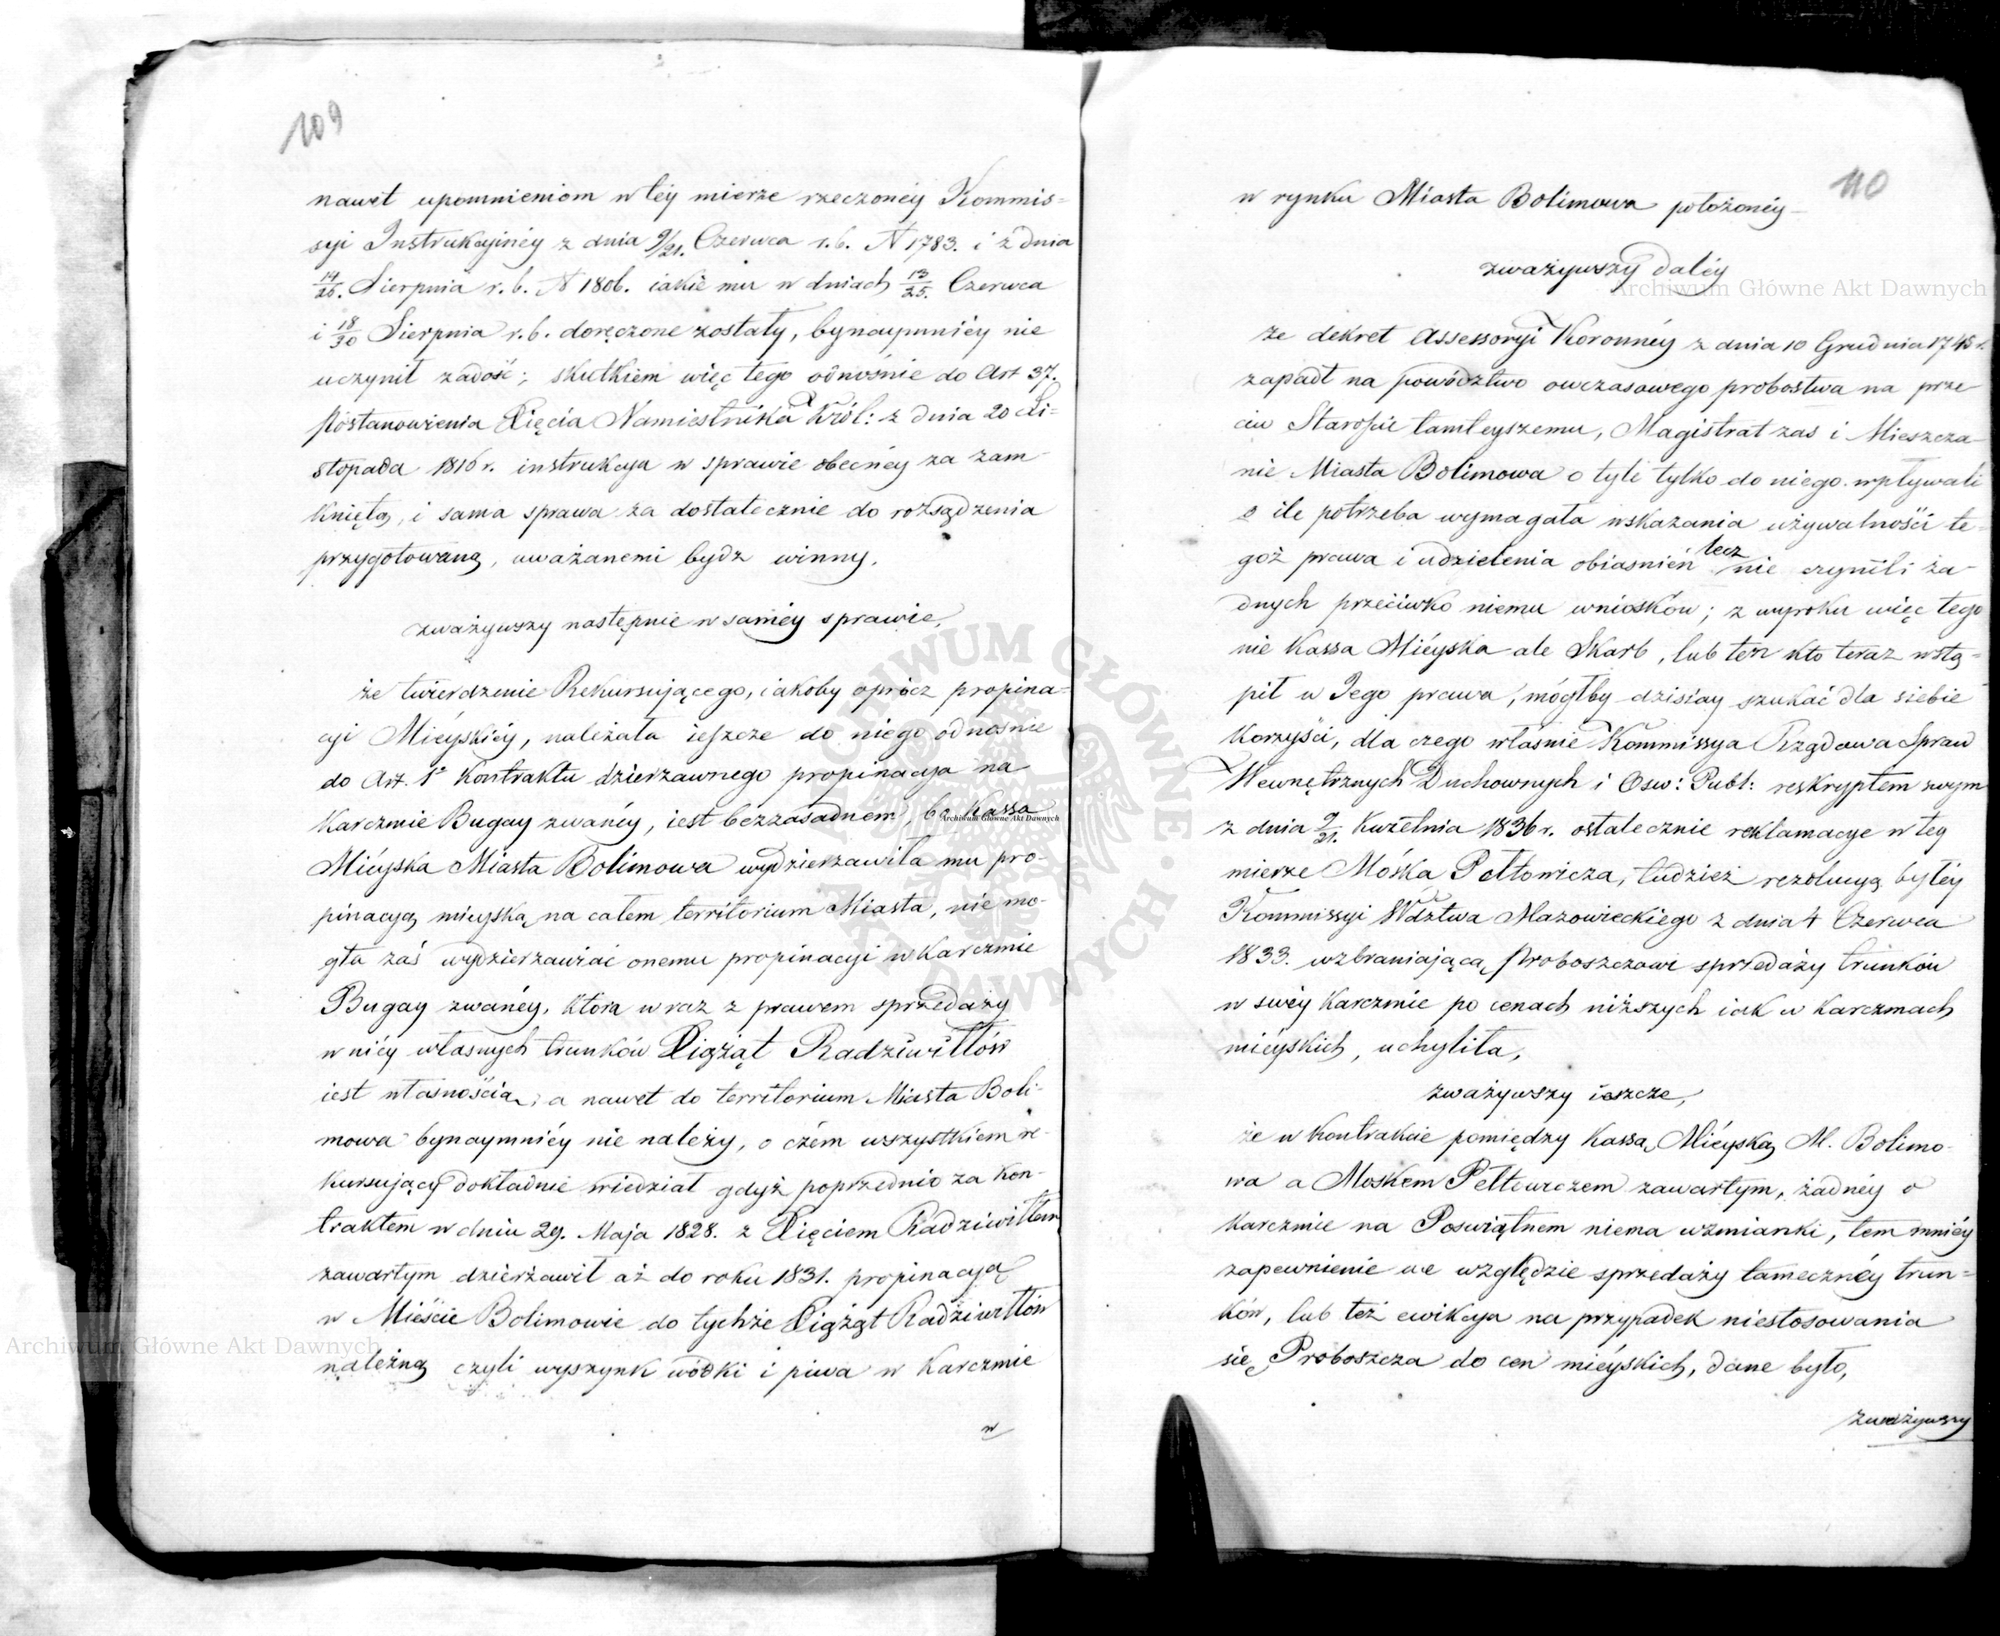 109
nawet upomnieniom w téy mierze rzeczonéy Kommis-
syi Instrukcyinéy z dnia 9/21. Czerwca r.b. N 1783. i z dnia
14/26. Sierpnia r.b. N 1806. iakie mu w dniach 13/25. Czerwca
i 18/30 Sierpnia r.b. doręczone zostały, bynaymniéy nie
uczynił zadość; skutkiem więc tego odnośnie do Art 37.
Postanowienia Xięcia Namiestnika Król: z dnia 20 Li-
stopada 1816 r. instrukcya w sprawie obecnéy za zam-
kniętą, i sama sprawa za dostatecznie do rozsądzenia
przygotowaną, uważanemi bydz winny.
zważywszy następnie w saméy sprawie,
że twierdzenie Rekursuiącego, iakoby oprócz propina-
cyi Miéyskiéy, należała ieszcze do niego odnośnie
do Art. 1º Kontraktu dzierzawnego propinacya na
Karczmie Bugay zwanéy, iest bezzasadnem, bo Kassa
Miéyska Miasta Bolimowa wydzierzawiła mu pro-
pinacyą mieyską na całem territorium Miasta, nie mo-
gła zaś wydzierzawiać onemu propinacyi w Karczmie
Bugay zwanéy, która wraz z prawem sprzedaży
w niéy własnych trunków Xiążąt Radziwiłłów
iest własnością, a nawet do territorium Miasta Boli-
mowa bynaymniéy nie należy, o czém wszystkiem re-
kursuiący dokładnie wiedział gdyż poprzednio za Kon-
traktem w dniu 29. Maja 1828. z Xięciem Radziwiłłem
zawartym dzierżawił aż do roku 1831. propinacyą
w Mieście Bolimowie do tychże Xiążąt Radziwiłłów
należną czyli wyszynk wódki i piwa w Karczmie
w
110
w rynku Miasta Bolimowa położonéy
zważywszy daléy
że dekret Assessoryi Koronnéy z dnia 10 Grudnia 1745 r.
zapadł na powództwo owczasowego probostwa na prze
ciw Staroście tamteyszemu, Magistrat zas i Mieszcza-
nie Miasta Bolimowa o tyle tylko do niego wpływali
o ile potrzeba wymagała wskazania używalności te-
goż prawa i udzielenia obiasnień lecz nie czynili ża-
dnych przeciwko niemu wniosków; z wyroku więc tego
nie Kassa Miéyska ale Skarb, lub ten kto teraz wstą-
pił w Jego prawa, mógłby dzisiay szukać dla siebie
Korzyści, dla czego własnie Kommissya Rządowa Spraw
Wewnętrznych Duchownych i Osw: Publ: reskryptem swym
z dnia 9/21. Kwietnia 1836 r. ostatecznie reklamacye w tey
mierze Moska Pełtowicza, tudzież rezolucyą byłéy
Kommissyi Wdztwa Mazowieckiego z dnia 4 Czerwca
1833. wzbraniającą Proboszczowi sprzedaży trunków
w swéy Karczmie po cenach niższych iak w Karczmach
miéyskich, uchyliła,
zważywszy ieszcze,
że w Kontrakcie pomiędzy Kassą Miéyską M. Bolimo-
wa a Moskem Pełtowiczem zawartym, żadnéy o
Karczmie na Poswiątnem niema wzmianki, tem mniéy
zapewnienie we względzie sprzedaży tamecznéy trun-
ków, lub też ewikcya na przypadek niestosowania
się Proboszcza do cen miéyskich, dane było,
zważywszy
Archiwum Główne Akt Dawnych
Archiwum Główne Akt Dawnych
Archiwum Główne Akt Dawnych
ARCHIWUM GŁÓWNE AKT DAWNYCH